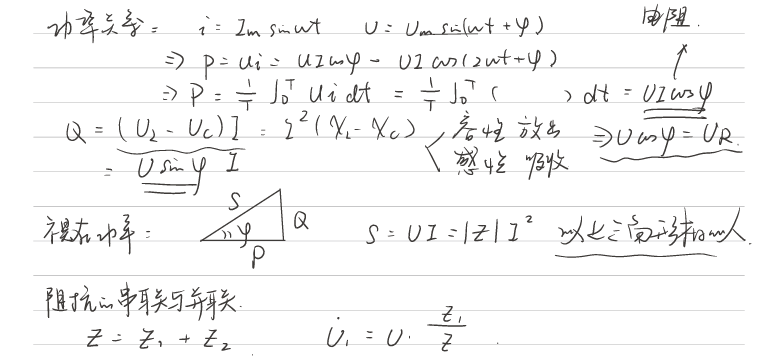 功率关系: i = Im sin ωt u = Um sin(ωt + φ) 电阻.
⇒ p = ui = UI cosφ - UI cos(2ωt + φ) ↑
⇒ P = 1/T ∫₀ᵀ ui dt = 1/T ∫₀ᵀ ( ) dt = UI cosφ
Q = (U₂ - Uc) I = I²(X_L - Xc) 容性 放出 ⇒ U cosφ = U_R.
= U sinφ I 感性 吸收
视在功率: S φ Q P S = UI = |Z| I² 以上三角形相似.
阻抗的串联与并联.
Z = Z₁ + Z₂ U̇₁ = U̇ · Z₁/Z